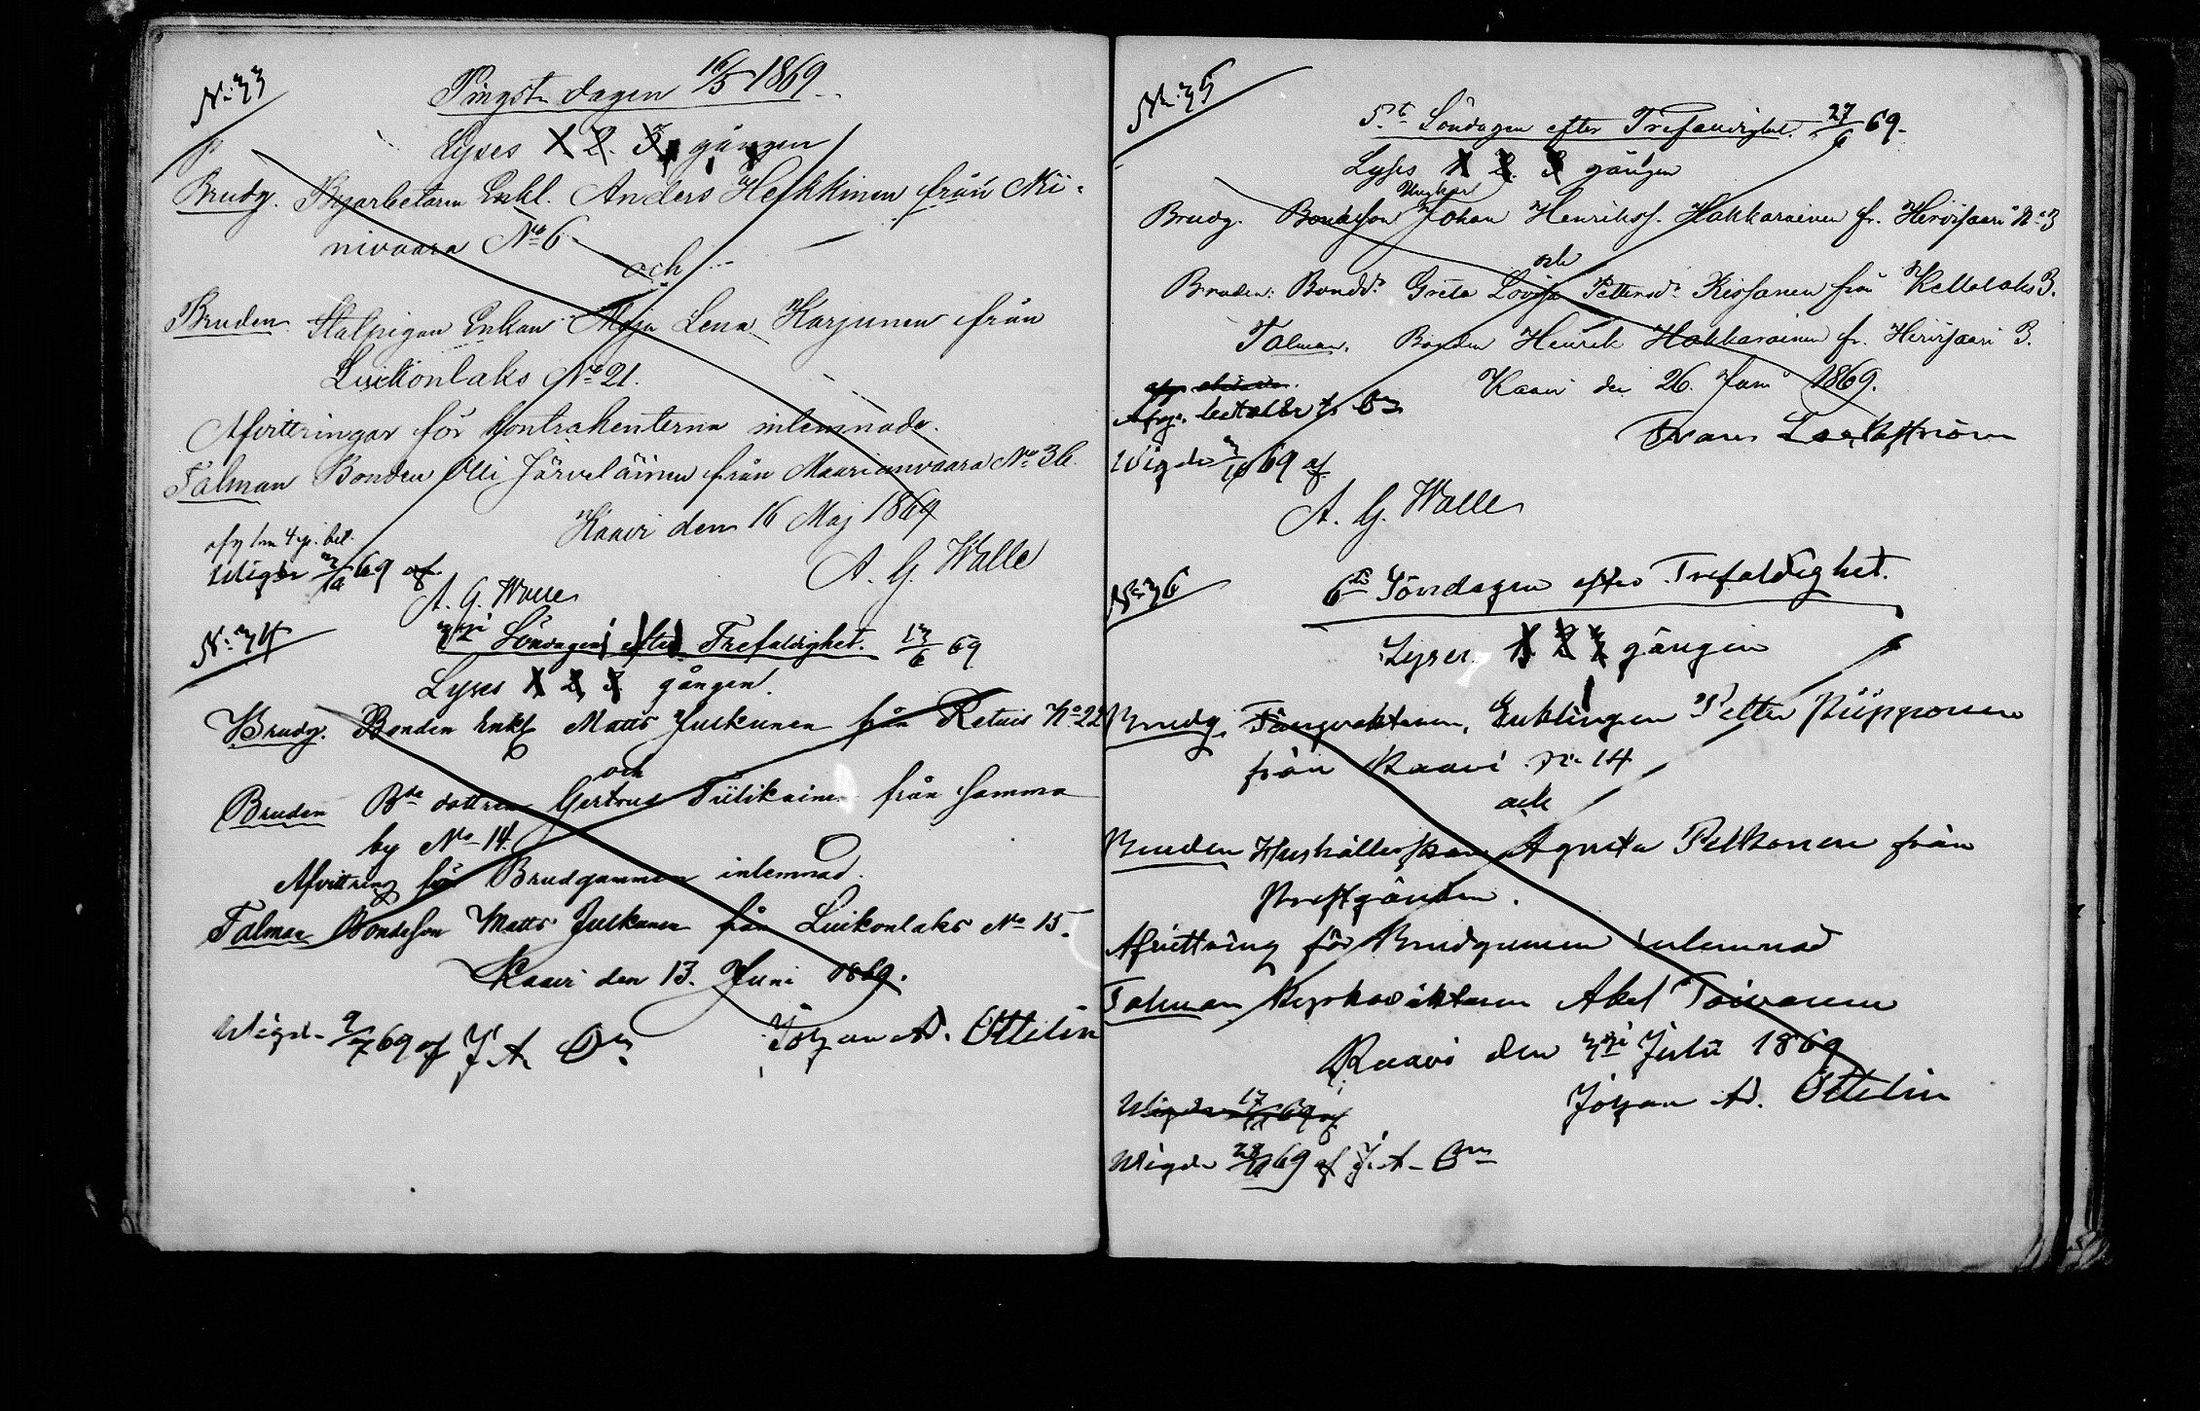 N:33
Pingst dagen 16/5 1869.
Lyses 1. 2. 3. gången
Brudg. Byarbetaren Enkl. Anders Heikkinen från Ni-
nivaara No 6
och
Bruden. Stalpigan Enkan Maja Lena Karjunen från
Luikonlaks No 21.
Afvittringar för kontrahenterna inlemnade.
Talman Bonden Olli Järveläinen från Maarianvaara No 36.
Kaavi den 16 Maj 1869
A. G. Walle
afg 1 m 4 p. bet.
Wigde 3/10 69 af
A. G. Walle
N:34
3dje Söndagen efter Trefaldighet. 13/6 69
Lyses 1. 2. 3. gången.
Brudg. Bonden Enkl Matts Juskunen från Retuis No 22
och
Bruden Bde dottren Gertrud Tiilikainen från samma
by No 14.
Afvittring för Brudgummen inlemnad.
Talman Bondeson Matts Juskanen från Luikonlaks No 15.
Kaavi den 13. Juni 1869.
Johan Ad. Ottelin
Wigde 9/7 69 af J A On
No 35
5te Söndagen efter Trefaldighet. 27/6 69.
Lyses 1 2. 3 gången
Ungkarl
Brudg. Bondeson Johan Henrikss. Hakkarainen fr. Hirvisaari No 3
och
Bruden: Bondd: Greta Lovisa Pettersdr Kissanen från Kellolaks 3.
Talman. Bonden Henrik Hakkarainen fr. Hirvisaari 3.
Kaavi den 26. Juni 1869.
Frans Lackström
Afg. betalder
Wigde 3/10 69 af
A. G. Walle
No 36
6te Söndagen efter Trefaldighet.
Lyses. 1. 2 3 gången
Brudg. Fångvaktaren, Enklingen Petter Piipponen
från Kaavi No 14
och
Bruden Hushållerskan Agneta Pelkonen från
Prestgården.
Afvittring för Brudgumen inlemnad
Talman Kyrkovaktaren Abel Toivanen
Kaavi den 3dje Julii 1869
Johan Ad. Ottelin
Wigde 17/10 69 af
Wigde 28/10 69 af J. A. On